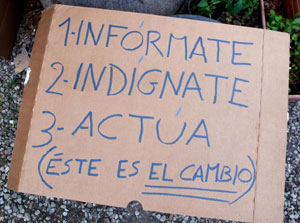 1-INFÓRMATE
2-INDÍGNATE
3-ACTÚA
(ÉSTE ES EL CAMBIO)